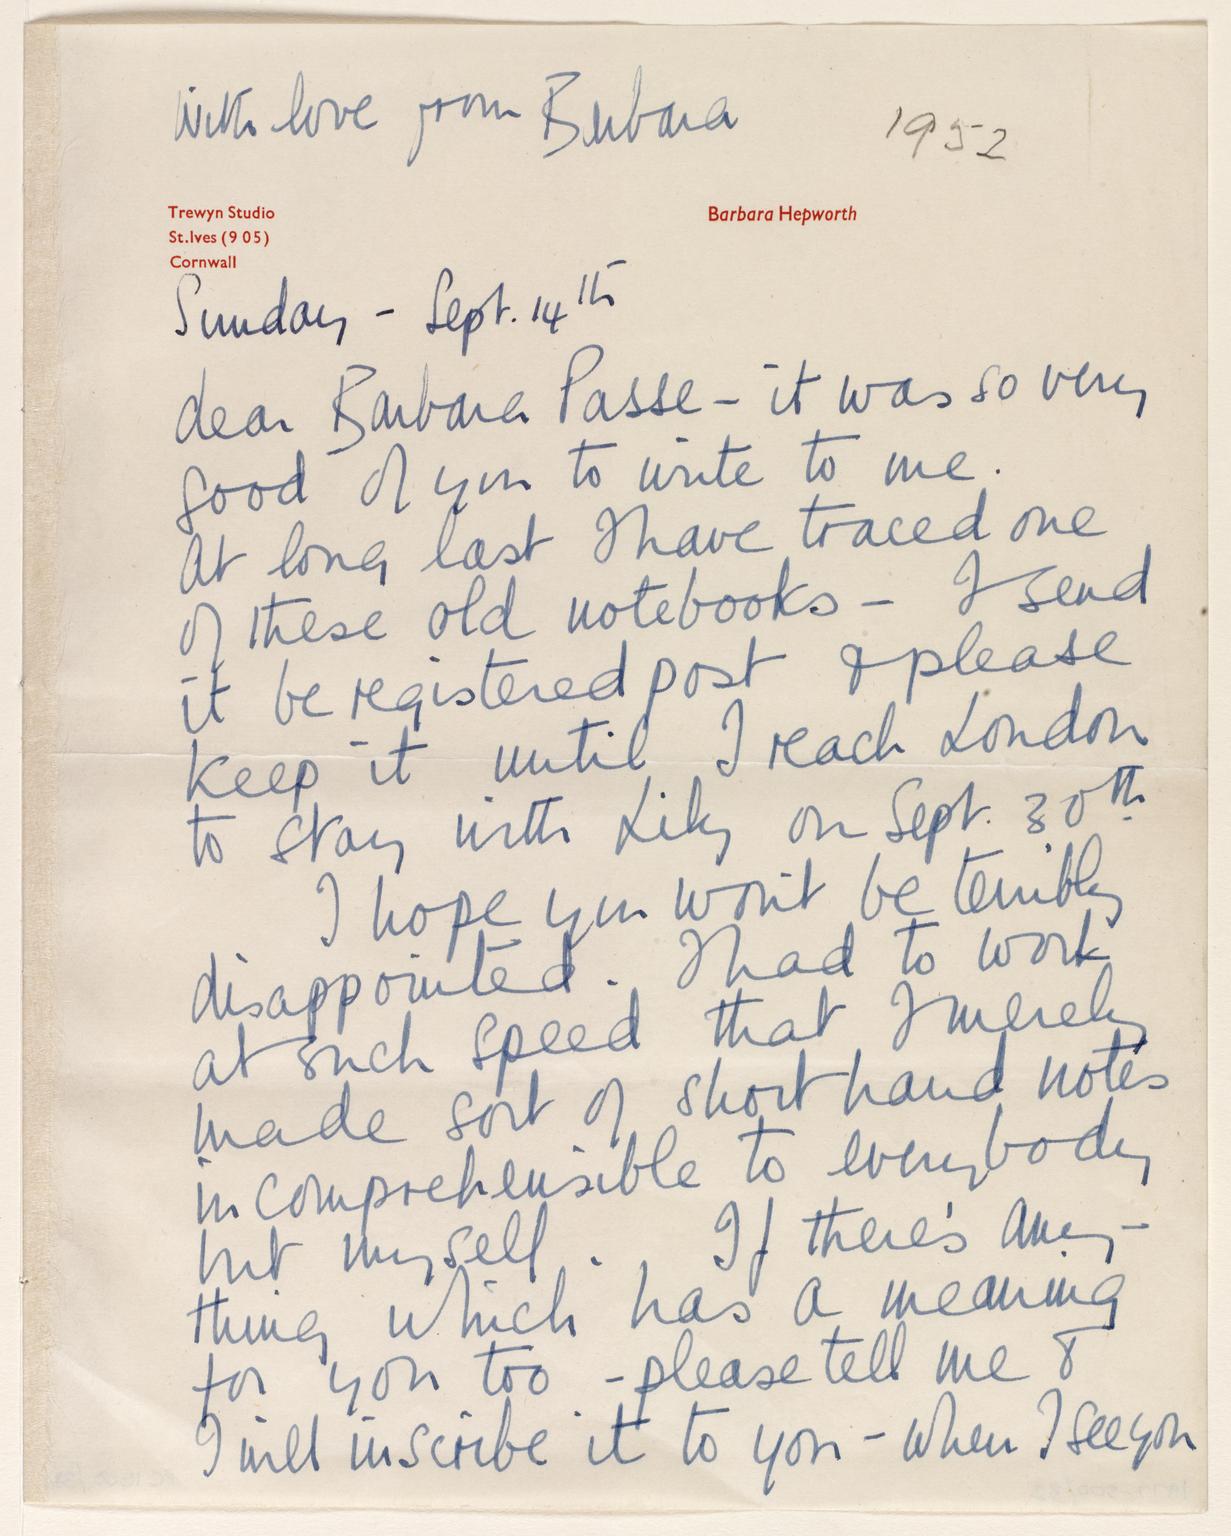 With love from Barbara
1952
Trewyn Studio
St.Ives (9 05)
Cornwall
Barbara Hepworth
Sunday - Sept. 14th
dear Barbara Passe - it was so very
good of you to write to me.
At long last I have traced one
of these old notebooks - I send
it be registered post & please
keep it until I reach London
to stay with Lily on Sept. 30th.
I hope you won't be terribly
disappointed. I had to work
at such speed that I merely
made sort of shorthand notes
incomprehensible to everybody
but myself. If there's any-
thing which has a meaning
for you too - please tell me &
I will inscribe it to you - when I see you